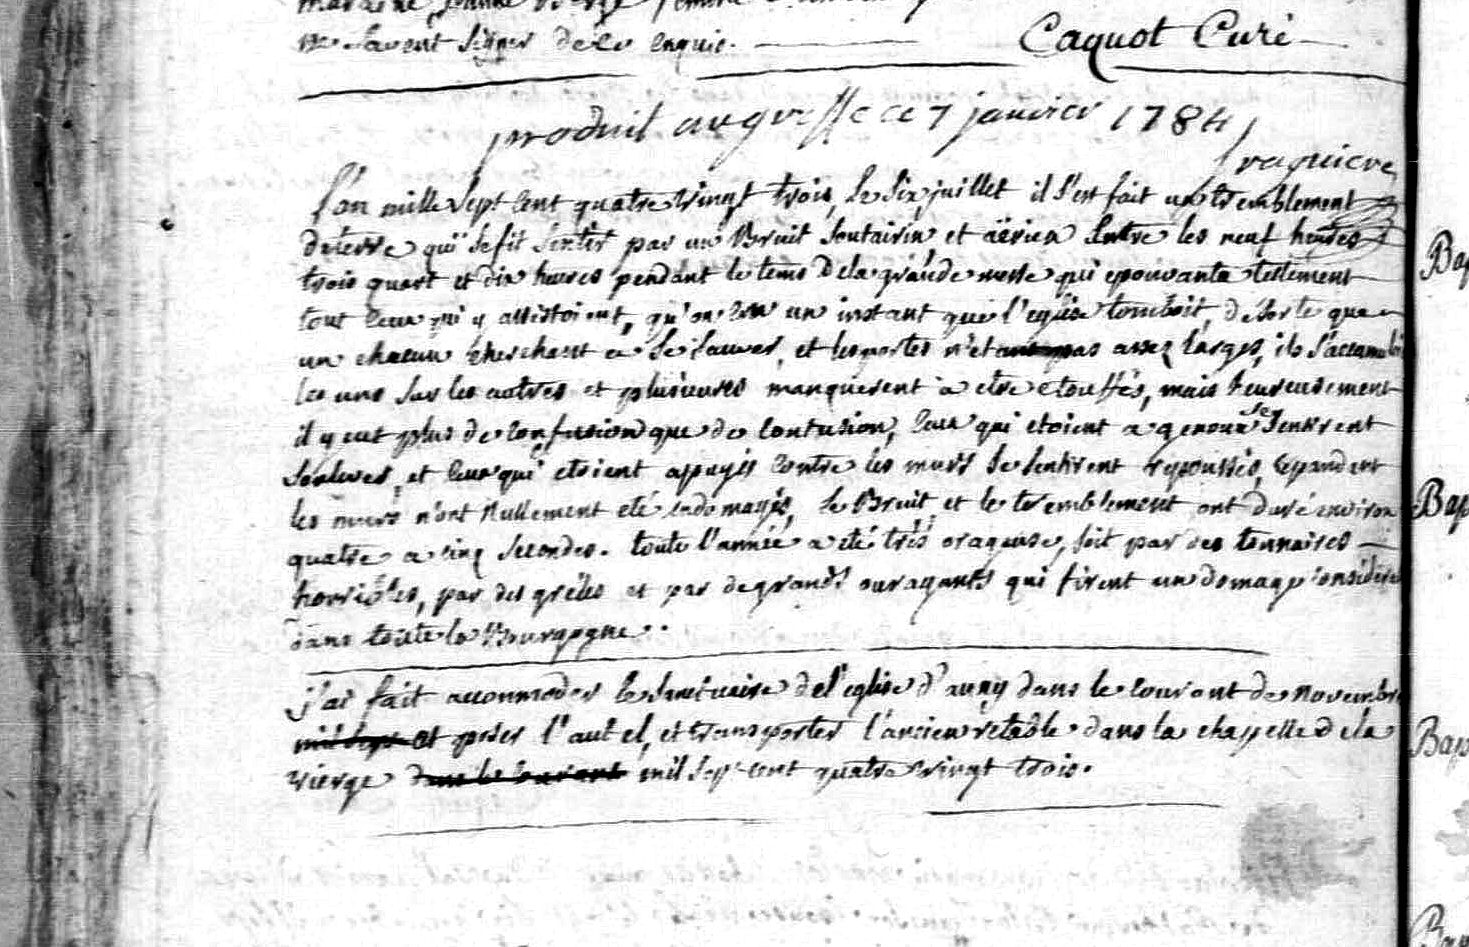 maraine jeanne
ne Savent Signer de ce enquis. Caquot Curé
produit au greffe ce 7 janvier 1784
fraquiere
l'an mille Sept Cent quatre vingt trois, le Six juillet il S'est fait un tremblement
de terre qui Se fit Sentir par un Bruit Soutairin et äérien Entre les neuf heures
trois quart et dix heures pendant le tems de la grande messe qui epouvanta tellement
tout Ceux qui y assistoient, qu'on Cru un instant que l'eglise tomboit, de Sorte que
un chacun Cherchant a Se Sauver, et les portes n'etant pas assez larges, ils S'accumuloi
les uns Sur les autres et plusieures manquerent a etre etouffés, mais heureusement
il y eut plus de Confusion que de Contusion, Ceux qui etoient a genoux se Sentirent
Soulever, et Ceux qui etoient appuyés Contre les murs Se Sentirent repoussés, Cependant
les murs n'ont Nullement eté endomagés, le Bruit et le tremblement ont duré environ
quatre a cinq Secondes. toute l'année a eté très orageuse, Soit par des tonnaires
horribles, par des grêles et par de grands ouragants qui firent un domage Considera
dans toute la Bourgogne.
j'ai fait accommoder le Sanctuaire de l'eglise d' dans le Courant de Novembre
mil Sept et poser l'autel, et transporter l'ancien retable dans la chappelle de la
vierge dans le Courant mil Sept Cent quatre vingt trois.
Bap
Bap
Bap
Bap